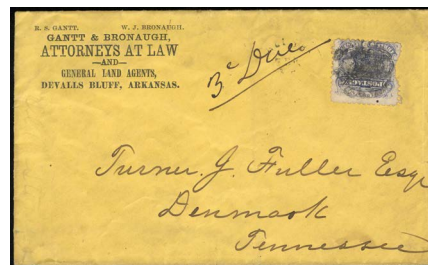 R. S. GANTT. W. J. BRONAUGH.
GANTT & BRONAUGH,
ATTORNEYS AT LAW
—AND—
GENERAL LAND AGENTS,
DEVALLS BLUFF, ARKANSAS.
3c Due
POSTAGE
Turner. J. Fuller Esqr
Denmark
Tennessee